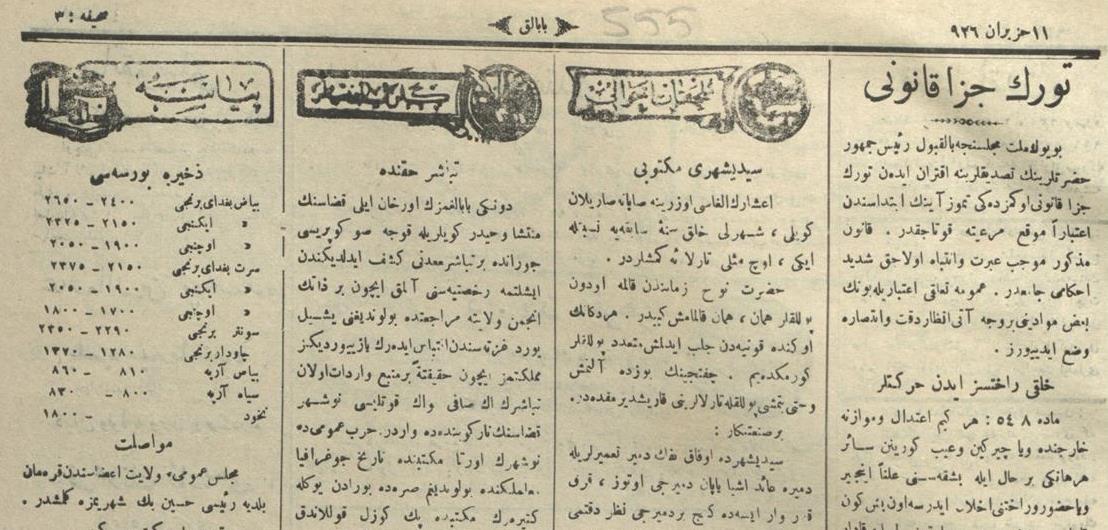 ١١ حزيران ٩٢٦
بابالق
555
صحيفه : ٣
تورك جزا قانونى
بويوك ملت مجلسنجه بالقبول رئيس جمهور
حضرتلرينك تصديقلرينه اقتران ايدن تورك
جزا قانونى اوكمزده‌كى تموز آينك ابتداسندن
اعتباراً موقع مرعيته قوناجقدر . قانون
مذكور موجب عبرت وانتباه اولاجق شديد
احكامى جامعدر . عمومه تعلقى اعتباريله بونك
بعض موادينى بروجه آتى انظار دقت وانتصاره
وضع ايدييورز .
خلقى راحتسز ايدن حركتلر
ماده ٥٤٨ : هر كيم اعتدال وموازنه
خارجنده ويا چيركين وعيب كورينن سائر
هرهانكى بر حال ايله بشقه‌سنى علناً اينجيدير
ويا حضور وراحتنى اخلال ايدرسه اون بش كون
سيديشهرى مكتوبى
اعشارك الغاسى اوزرينه صاپانه صاريلان
كويلى ، شهرلى خلق سنهٔ سابقه‌يه نسبتله
ايكى ، اوچ مثلى تارلا اكمشلردر .
حضرت نوح زماندن قالمه اودون
پوللقلر همان ، همان قالمامش كيبيدر . هر دكانك
اوكنده قونيه‌دن جلب ايدلمش متعدد پوللقلر
كورمكده‌يم . چفتجينك يوزده آلتمش
وحتى يتمشى پوللقله تارلالرينى قاريشديرمقده‌در .
بر صنعتكار :
سيديشهرده اوفاق تفك دمير تعميرلريله
دميره عائد اشيا ياپان دميرجى اوتوز ، قرق
قدر وار ايسه‌ده كنج بر دميرجى نظر دقتمى
تباشر حقنده
دونكى بابالغمزك اورخان ايلى قضاسنك
منتشا وحيدر كويلريله قوجه صو كوپريسى
جوارنده بر تباشر معدنى كشف ايدلديكندن
ايشلتمه رخصتيه‌سنى آلمق ايچون بر ذاتك
انجمن ولايته مراجعتده بولونديغنى يشيل
يورد غزته‌سندن اقتباس ايده‌رك يازييورديكز
مملكتمز ايچون حقيقةً بر منبع واردات اولان
تباشرك اك صافى واك قوتليسى نوشهر
قضاسنك نار كوينده‌ده واردر . حرب عموميده
نوشهرك اورتا مكتبنده تاريخ جوغرافيا
معلملكنده بولونديغم صره‌ده بورادن يوكله
كتيره‌رك مكتبده پك كوزل قوللاندق
پياسه
ذخيره بورسه‌سى
بياض بغداى برنجى ٢٤٠٠ – ٢٦٥٠
» ايكنجى ٢١٥٠ – ٢٣٢٥
» اوچنجى ١٩٠٠ – ٢٠٥٠
سرت بغداى برنجى ٢١٥٠ – ٢٣٧٥
» ايكنجى ١٩٠٠ – ٢٠٥٠
» اوچنجى ١٧٠٠ – ١٨٠٠
سونتر برنجى ٢٢٩٠ – ٢٣٥٠
چاودار برنجى ١٢٨٠ – ١٣٧٠
بياض آرپه ٨١٠ – ٨٦٠
سياه آرپه ٨٠٠ – ٨٣٠
نخود – ١٨٠٠
مواصلت
مجلس عمومىء ولايت اعضاسندن قره‌مان
بلديه رئيسى حسين بك شهريمزه كلمشدر .